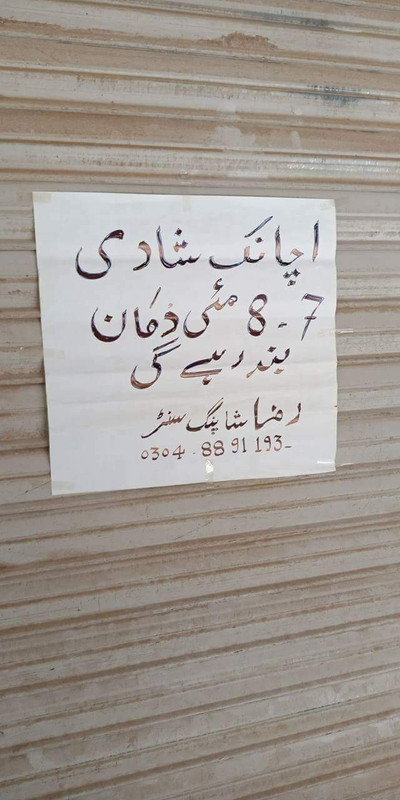 اچانک شادی
7-8 مئی دُکان
بند رہے گی
رضا شاپنگ سنٹر
0304-8891193